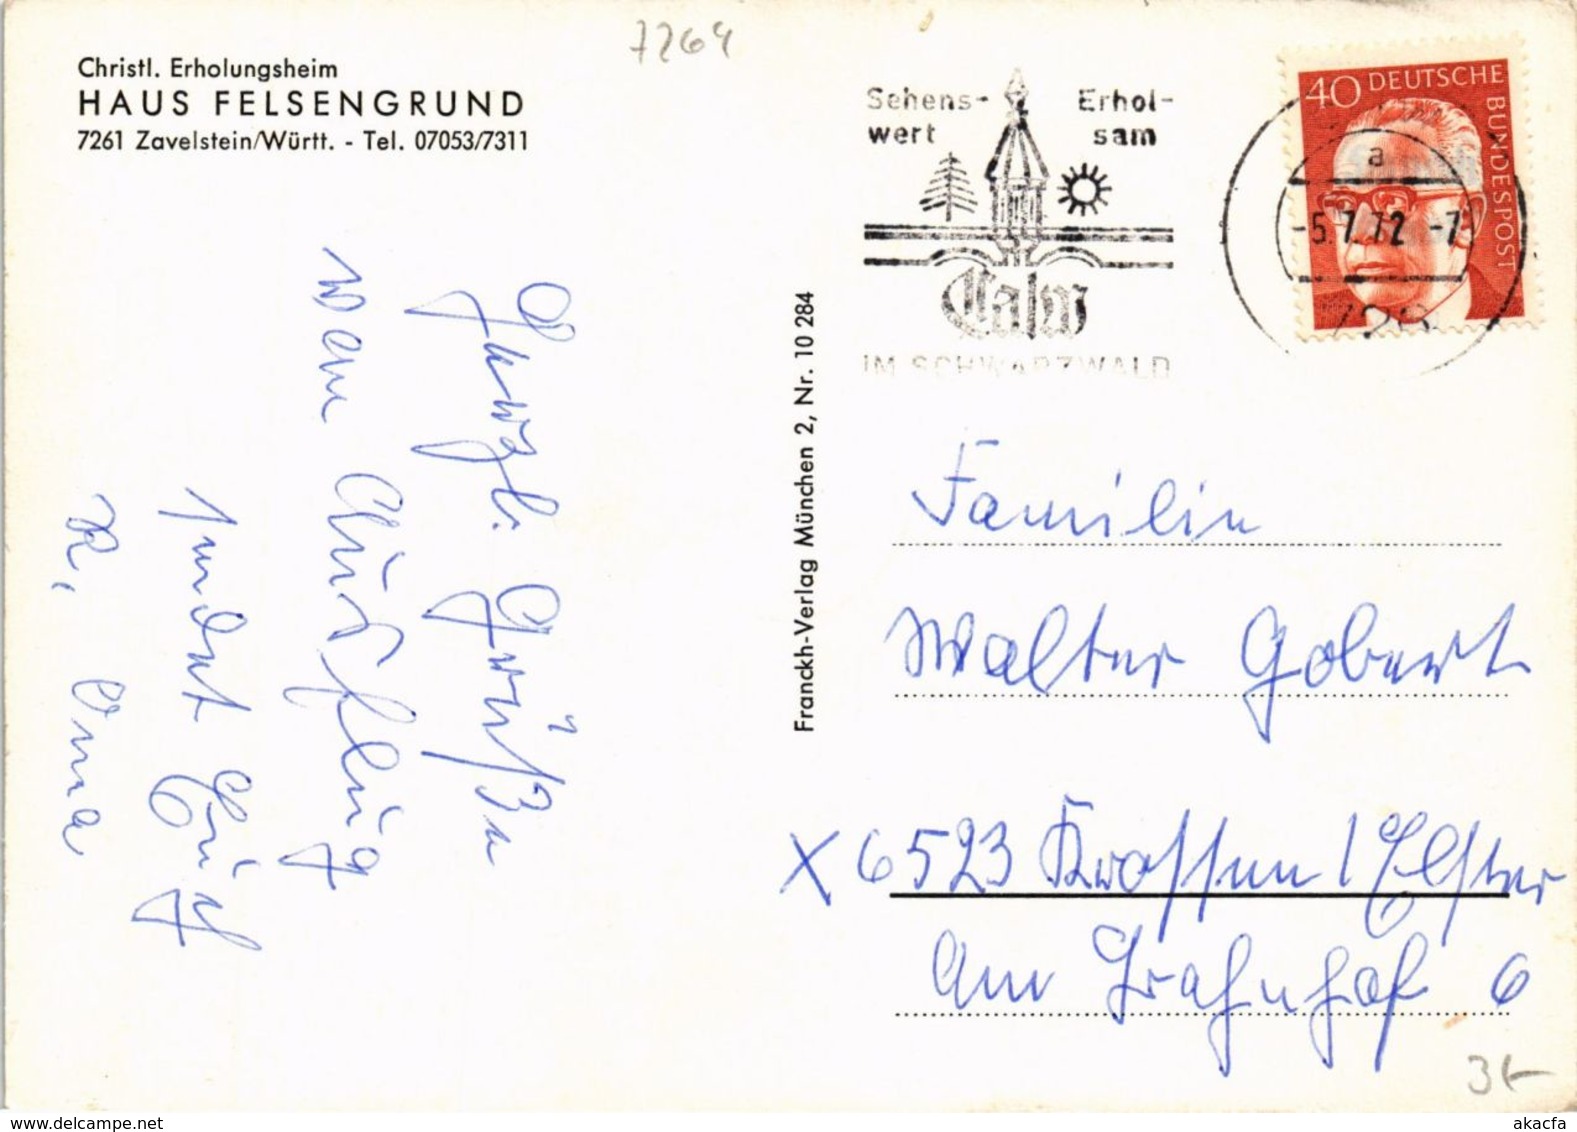 7264
Christl. Erholungsheim
HAUS FELSENGRUND
7261 Zavelstein/Württ. - Tel. 07053/7311
Sehens-
wert
Erhol-
sam
Calw
IM SCHWARZWALD
40 DEUTSCHE
BUNDESPOST
a
-5.7.72 -7
728
Herzgl. Grüße
vom Ausflug
sendet Euch
R, Oma
Franckh-Verlag München 2, Nr. 10 284
Familie
Walter Gobert
X 6523 Krossen / Elster
Am Bahnhof 6
delcampe.net
akacfa